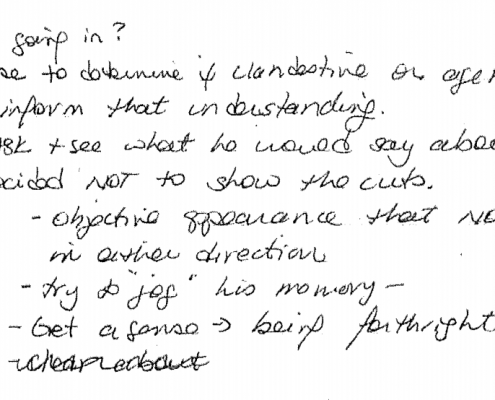 going in?
se to determine if clandestine or agen
inform that understanding.
+ see what he would say abou
cided NOT to show the cuts.
- objective appearance that NE
in either direction
- try to "jog" his memory -
- Get a sense → being forthright
- clear about